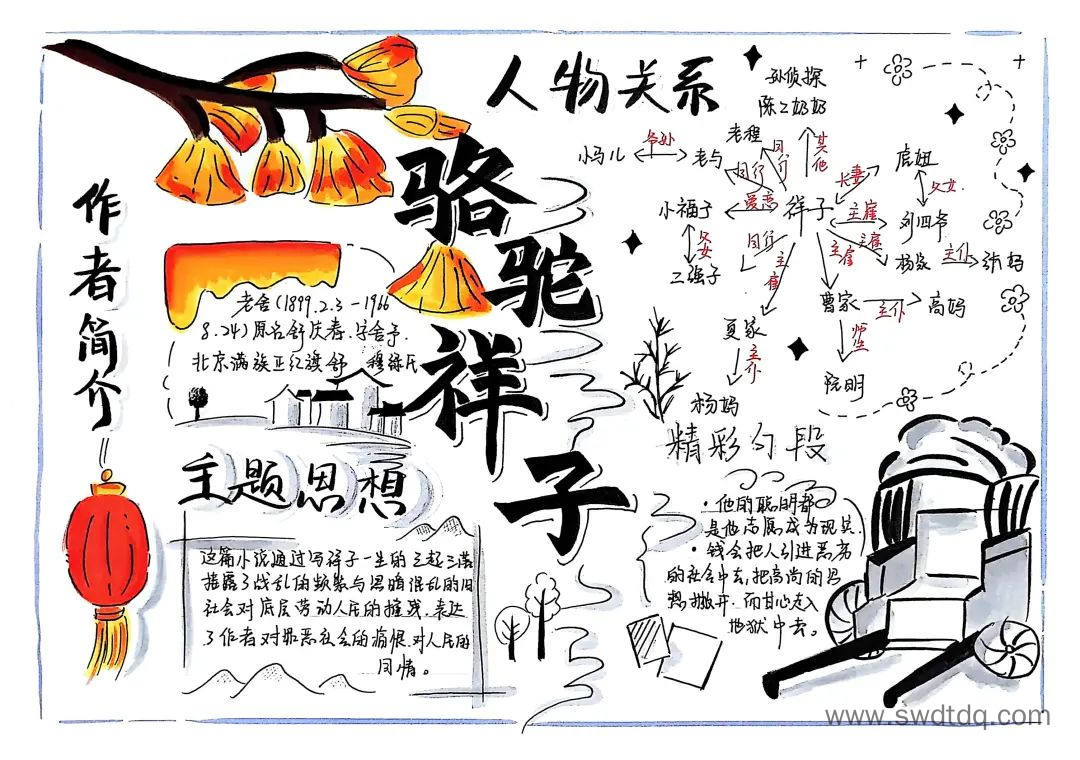 骆驼祥子
作者简介
老舍(1899.2.3-1966
8.24)原名舒庆春.字舍予.
北京满族正红旗舒 穆禄氏
主题思想
这篇小说通过写祥子一生的三起三落
揭露了战乱的频繁与黑暗混乱的旧
社会对底层劳动人民的摧残.表达
了作者对罪恶社会的痛恨.对人民的
同情。
人物关系
孙侦探
陈二奶奶
其他
老程
同行
小马儿
爷孙
老马
同行
虎妞
夫妻
父女
小福子
爱恋
祥子
主雇
刘四爷
父女
二强子
同行
主雇
主雇
主雇
杨家
主仆
张妈
曹家
主仆
高妈
师生
阮明
夏家
主仆
杨妈
精彩句段
·他的聪明都
是他志属成为现实.
·钱会把人引进恶劣
的社会中去,把高尚的思
想撇开.而甘心走入
地狱中去。
www.swdtdq.com